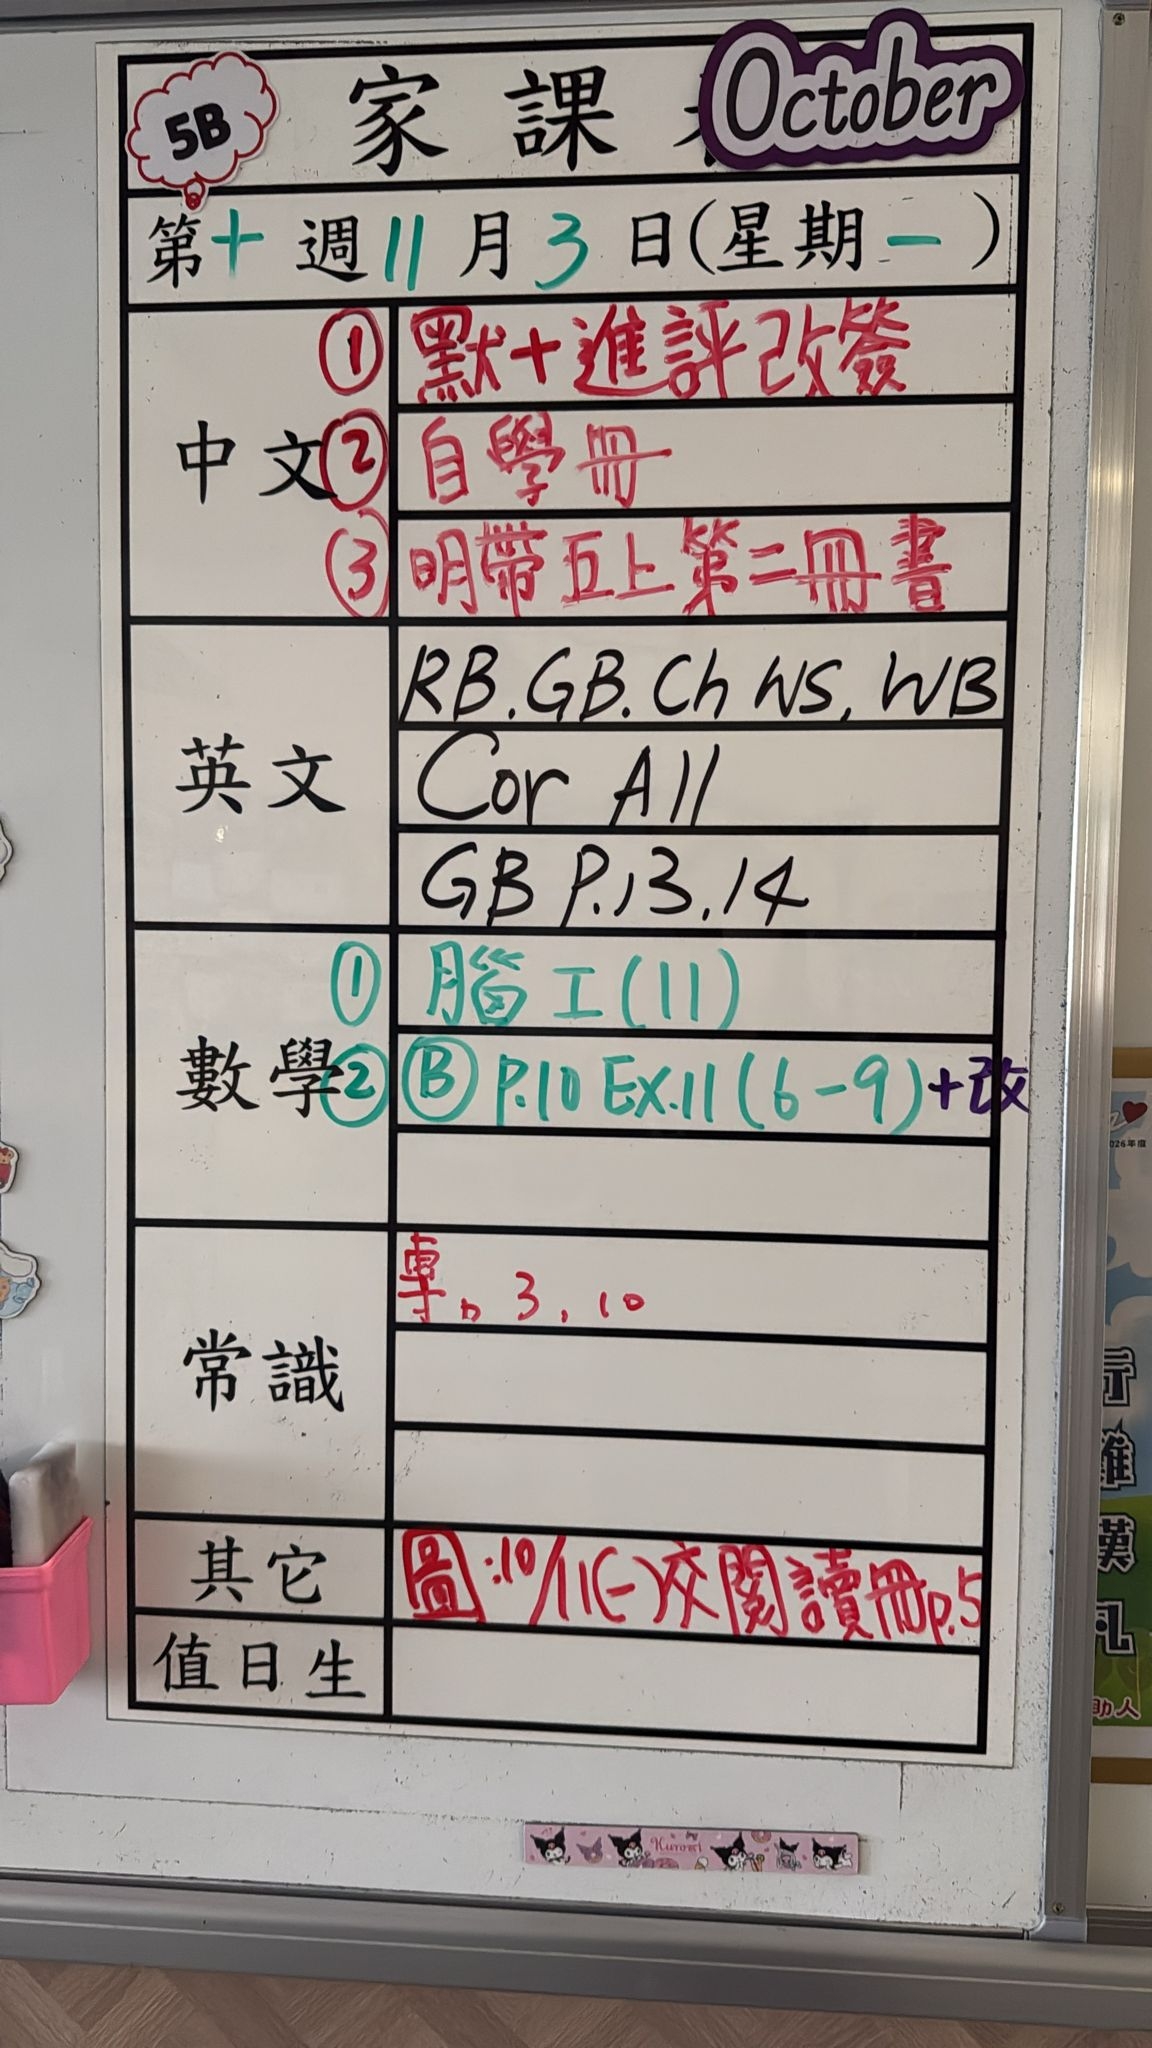 5B
家課
October
第十週11月3日(星期一)
中文
① 默+進評改簽
② 自學冊
③ 明帶五上第二冊書
英文
RB.GB.Ch WS, WB
Cor All
GB P.13.14
數學
① 腦工(11)
② Ⓑ P.10 Ex.11(6-9)+改
常識
專。3,10
其它
圖:10/11(一)交閱讀冊p.5
值日生
Kuromi
026年度
助人